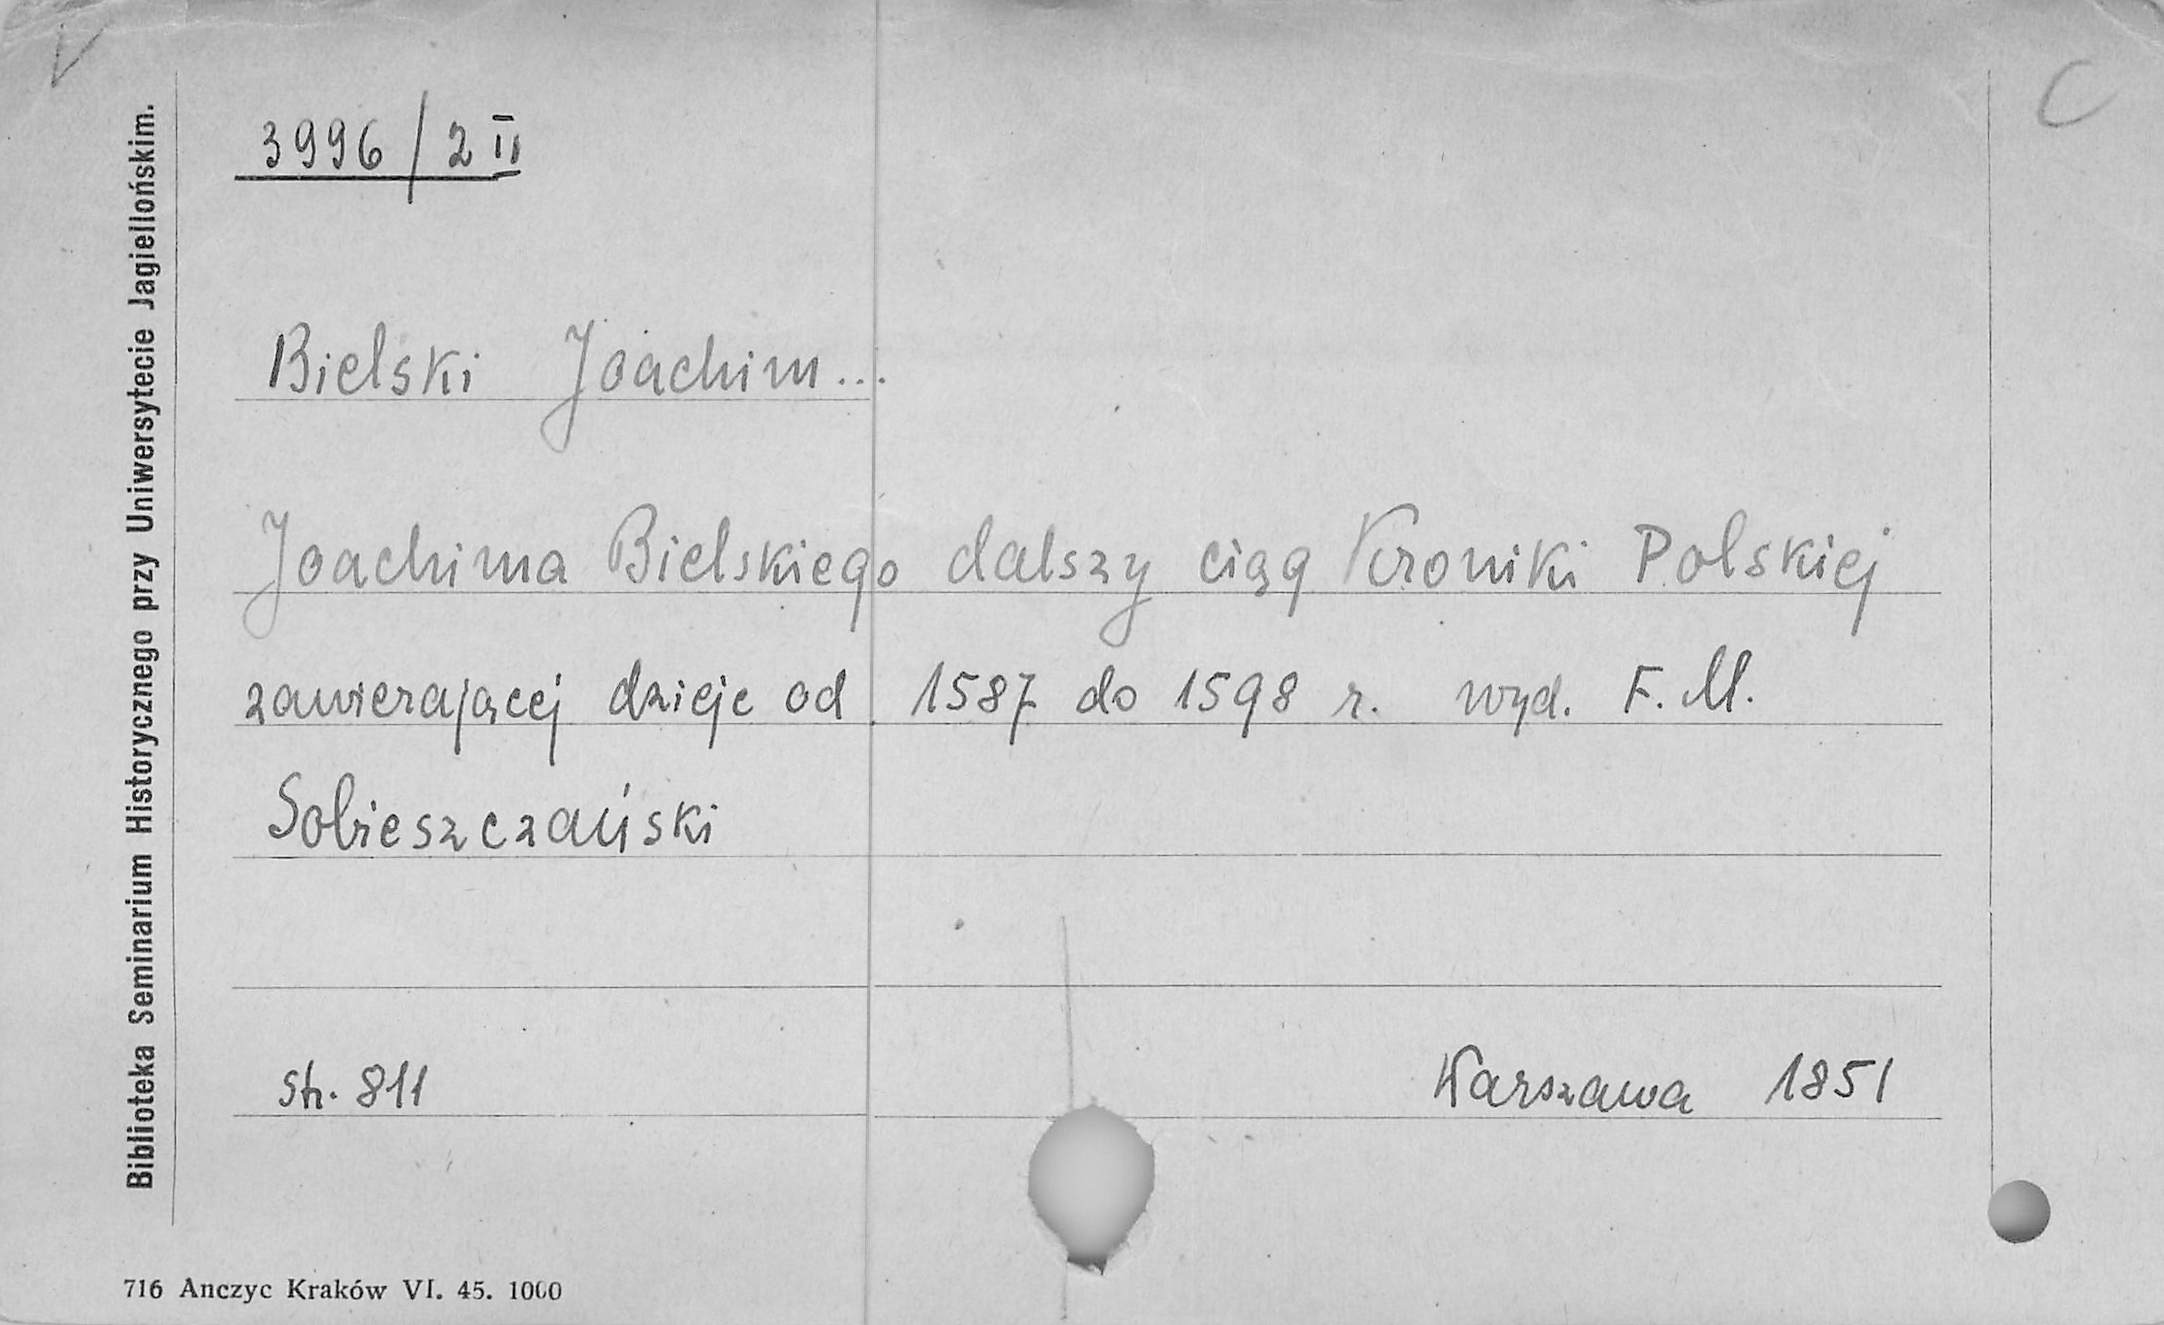 V
C
3996/2 II
Bielski Joachim...
Joachima Bielskiego dalszy ciąg Kroniki Polskiej
zawierającej dzieje od 1587 do 1598 r. wyd. F. M.
Sobieszczański
str. 811
Warszawa 1851
Biblioteka Seminarium Historycznego przy Uniwersytecie Jagiellońskim.
716 Anczyc Kraków VI. 45. 1000